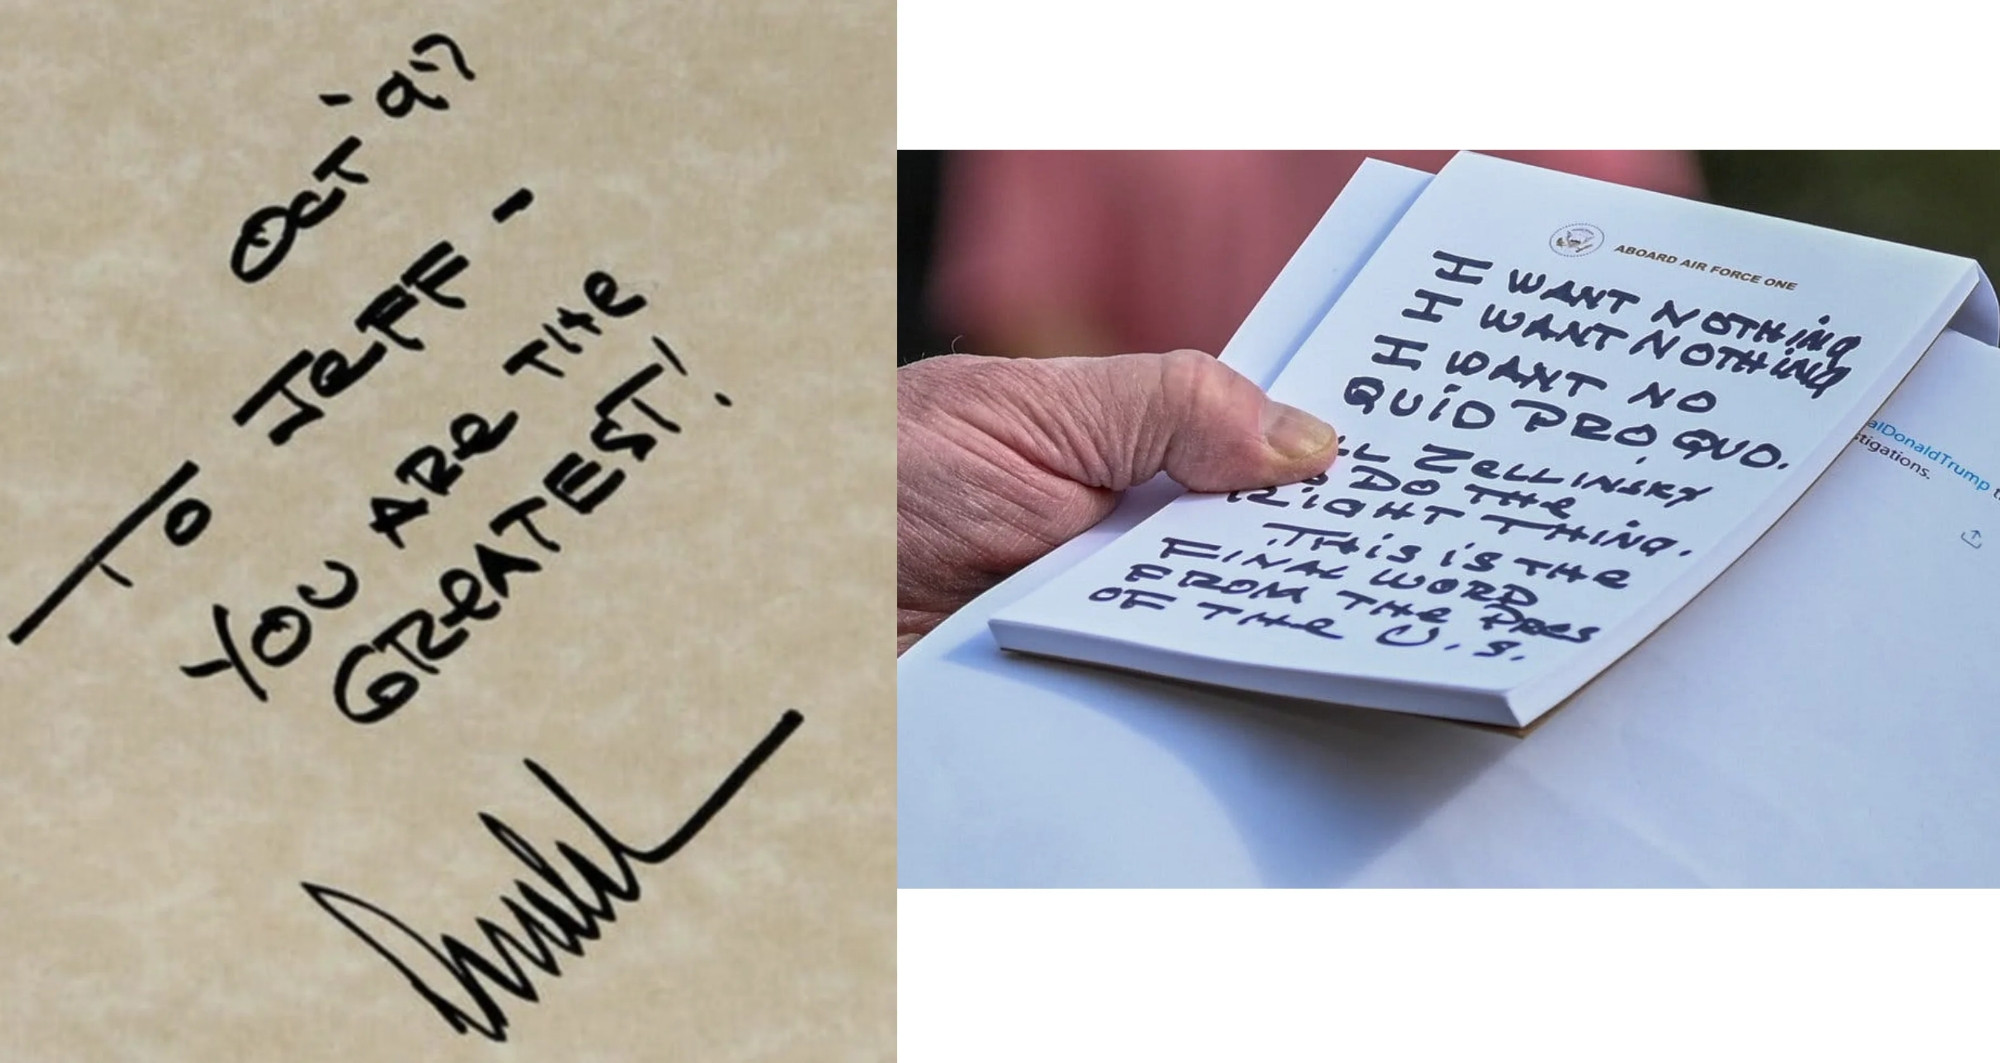 Oct '97
To
JeFF -
YOU ARe THe
GReATEST!
ABOARD AIR FORCE ONE
I WANT NOTHiNG
I WANT NOTHiNG
I WANT NO
QUiD PRO QUO.
ZeLLINSKY
DO THe
RiGHT THiNG.
THiS iS THe
FINAL WORD
FROM THe PReS
OF THe U.S.
alDonaldTrump
stigations.